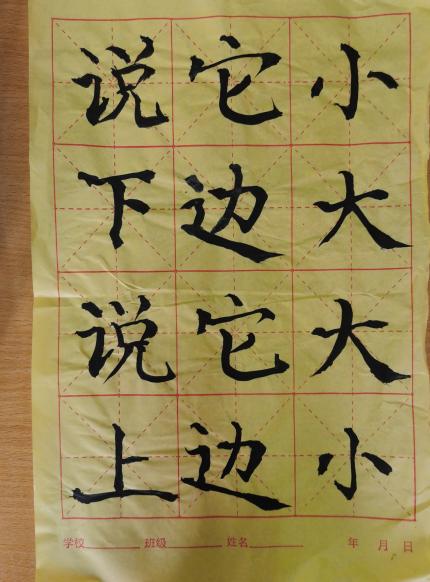 说它小
下边大
说它大
上边小
学校______ 班级______ 姓名______ 年 月 日